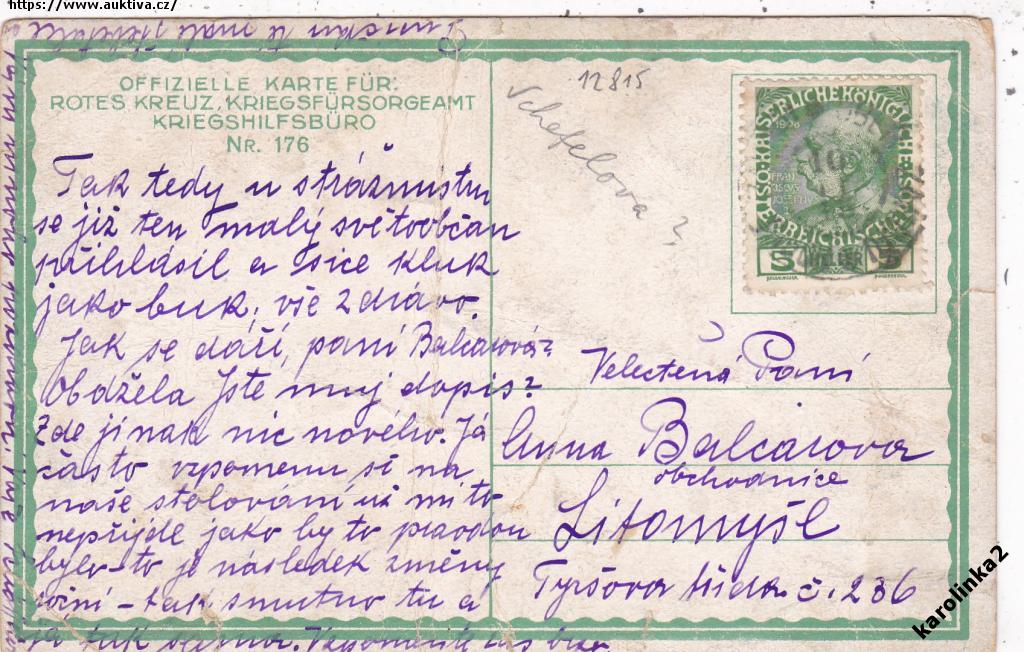 https://www.auktiva.cz/
OFFIZIELLE KARTE FÜR:
ROTES KREUZ, KRIEGSFÜRSORGEAMT
KRIEGSHILFSBÜRO
NR. 176
Tak tedy u strážmistru
se již ten malý světoobčan
přihlásil a sice kluk
jako buk, vše zdrávo.
Jak se dáří, paní Balcarová?
Obdžela Jste muj dopis?
Zde jinak nic nového. Já
často vzpomenu si na
naše stolování už mi to
nepřijde jako by to pravdou
bylo – to je následek změny
– tak smutno tu a
já tak sama. Vzpomeňte
12815
Schefelova?
5 HELLER 5
Velectěná Paní
Anna Balcarova
obchodnice
Litomyšl
Tyršova třída č. 236
karolinka2